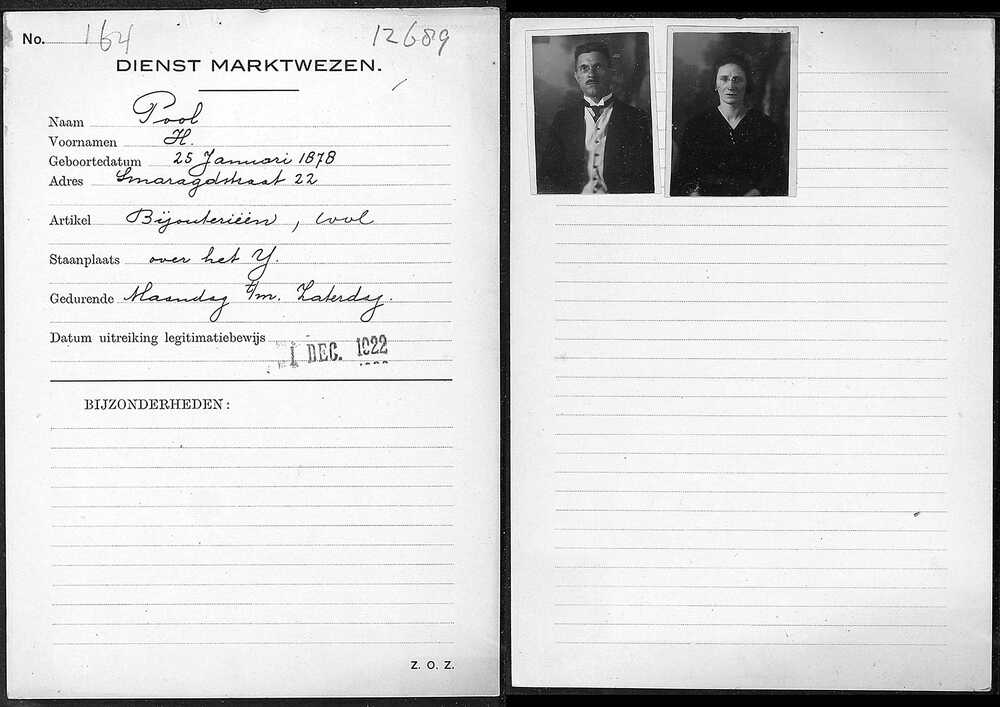 No. 164 12689
DIENST MARKTWEZEN.
Naam Pool
Voornamen H.
Geboortedatum 25 Januari 1878
Adres Smaragdstraat 22
Artikel Bijouterieën, wol
Staanplaats over het Y.
Gedurende Maandag t/m. Zaterdag.
Datum uitreiking legitimatiebewijs
1 DEC. 1922
BIJZONDERHEDEN:
Z. O. Z.